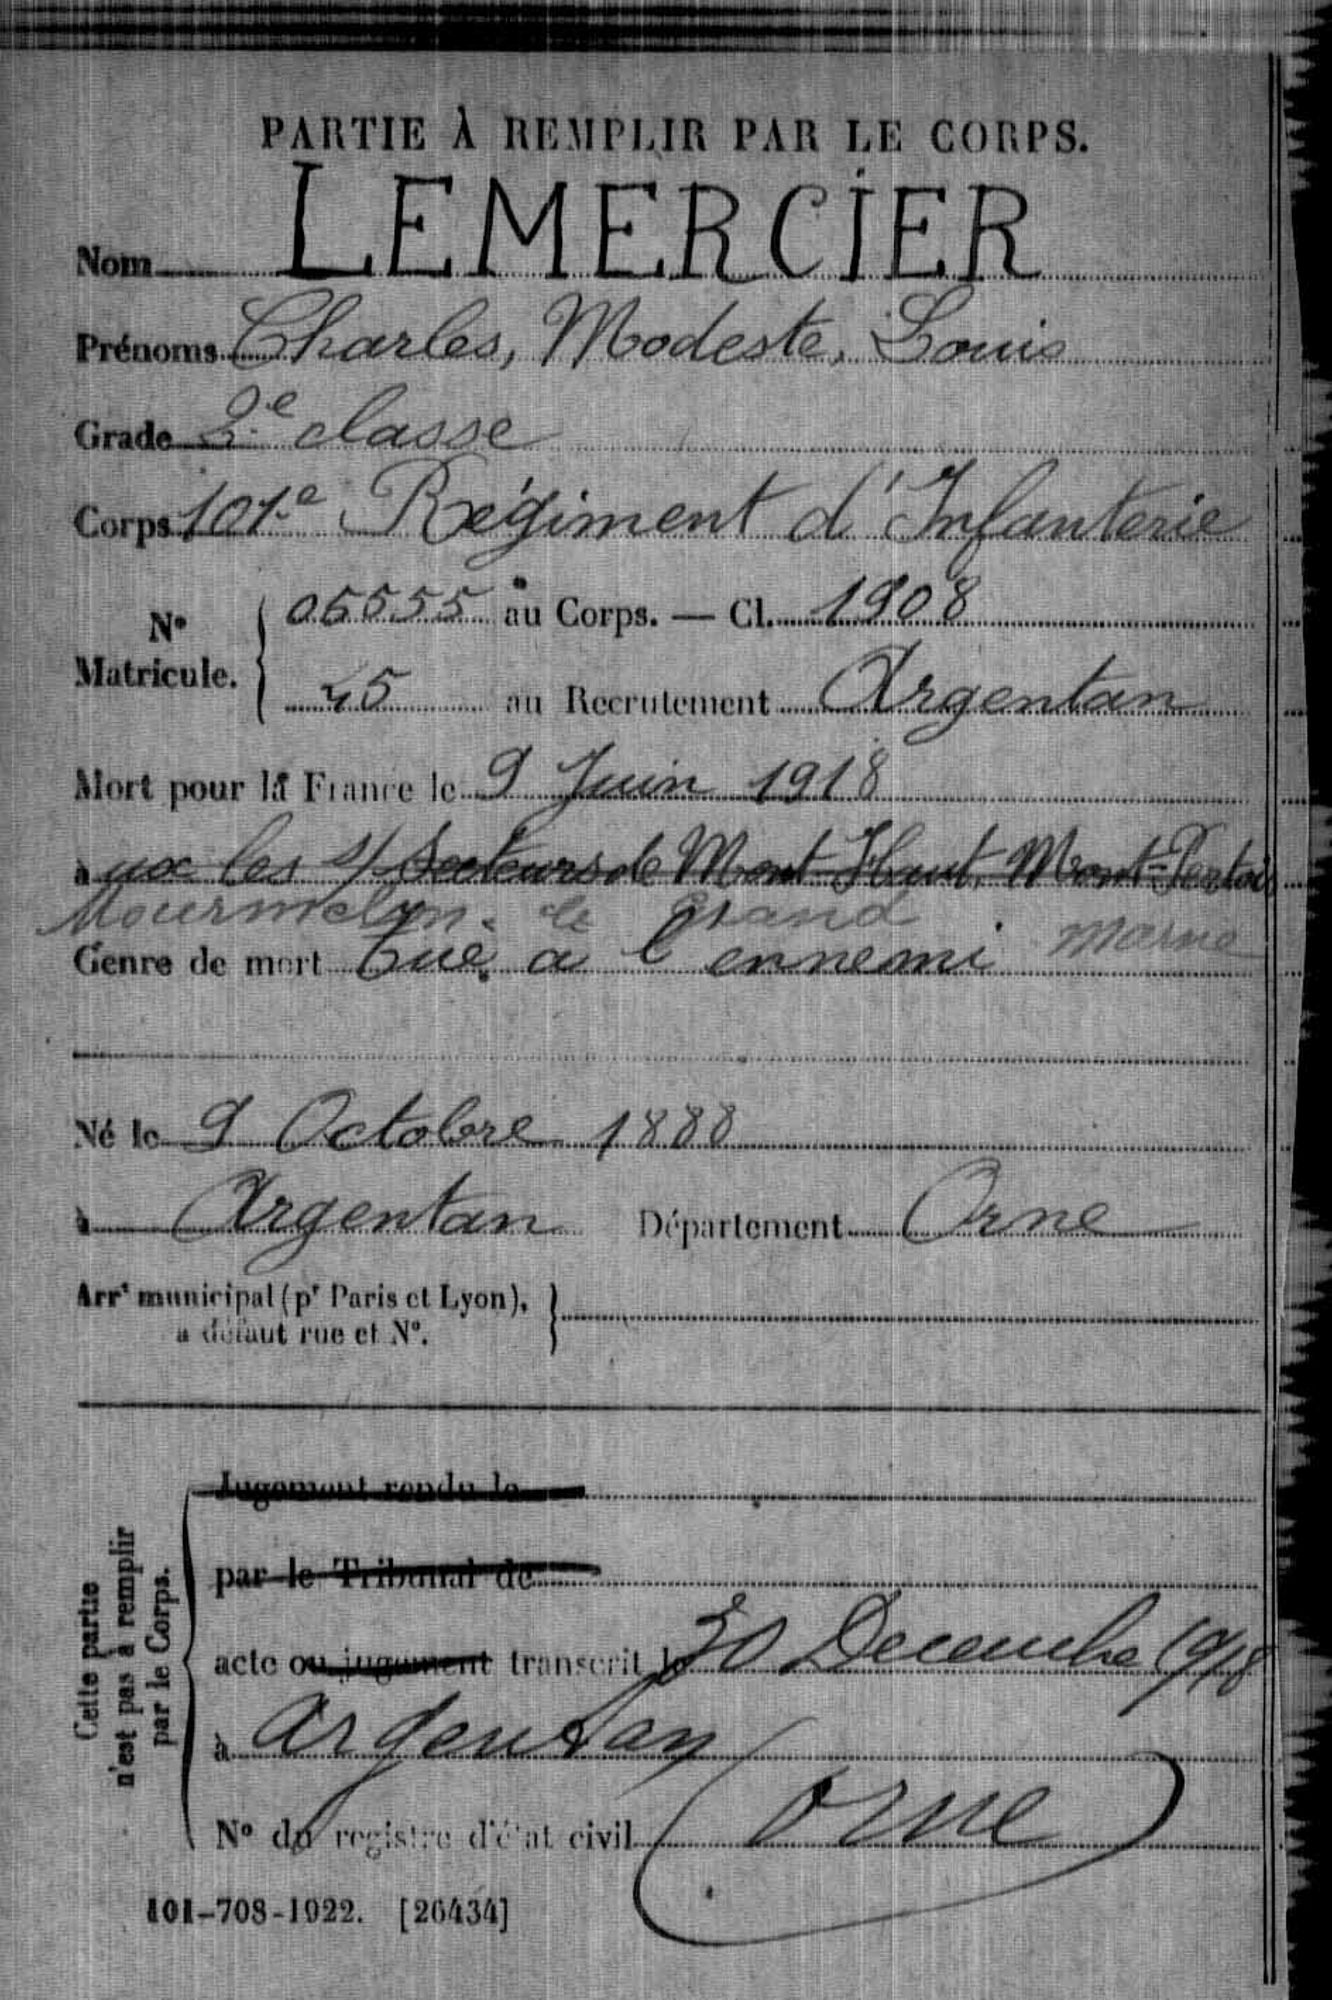 PARTIE À REMPLIR PAR LE CORPS.
Nom LEMERCIER
Prénoms Charles, Modeste, Louis
Grade 2e classe
Corps 101e Régiment d'Infanterie
No Matricule. { 05555 au Corps. — Cl. 1908
45 au Recrutement Argentan
Mort pour la France le 9 Juin 1918
à les s/ Secteurs de Mont-Haut, Mont-Pertois
Mourmelon. le grand
Marne
Genre de mort Tué à l'ennemi
Né le 9 Octobre 1888
à Argentan Département Orne
Arrt municipal (pr Paris et Lyon), }
à défaut rue et No.
Cette partie
n'est pas à remplir
par le Corps.
Jugement rendu le
par le Tribunal de
acte ou jugement transcrit le 30 Decembre 1918
à Argentan
No du registre d'état civil (Orne)
101-708-1922. [26434]